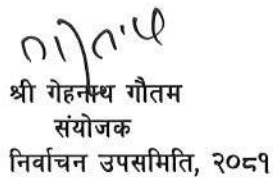 श्री गेहनाथ गौतम
संयोजक
निर्वाचन उपसमिति, २०८१